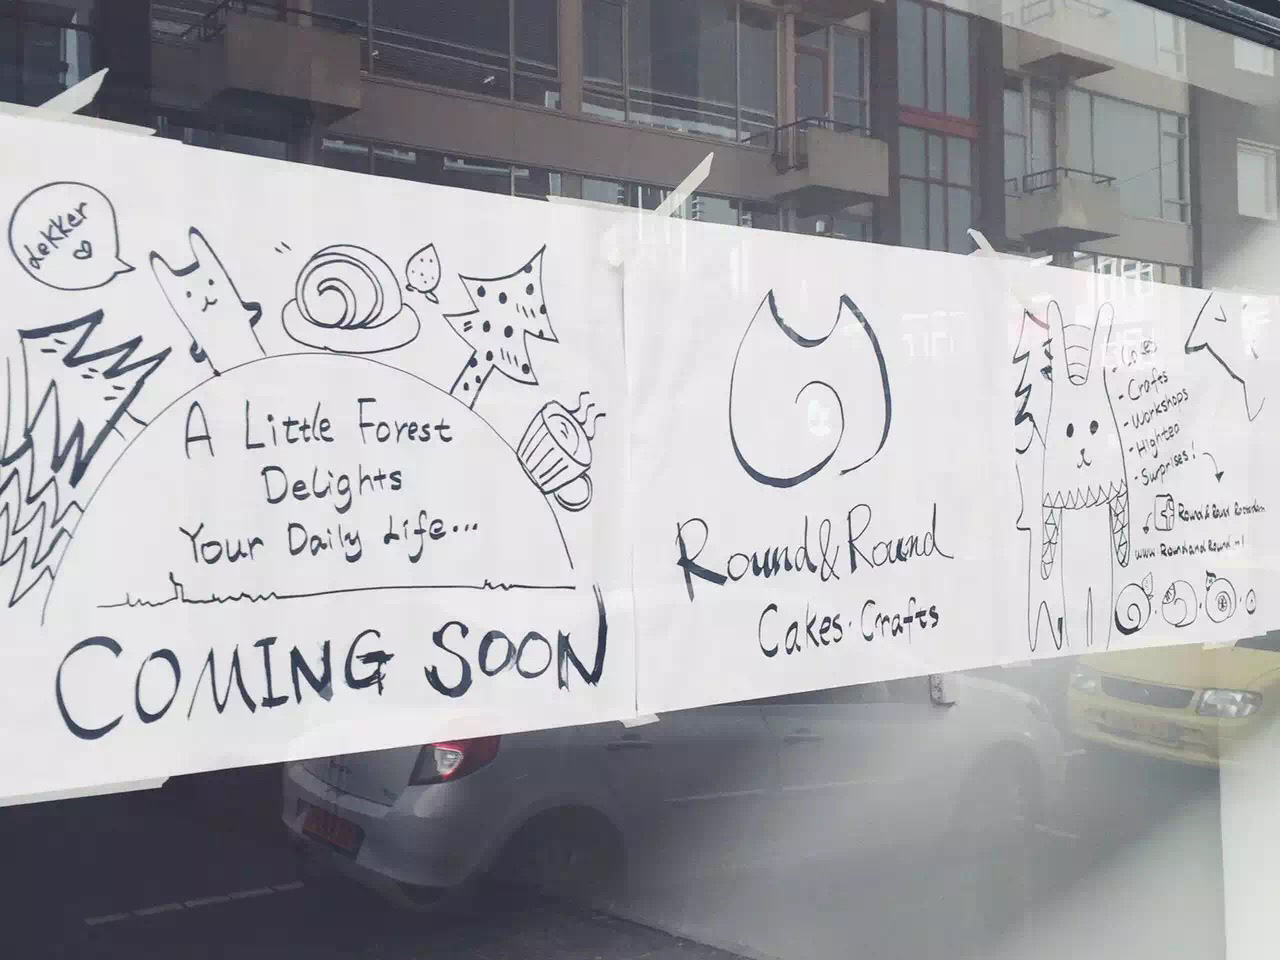 Lekker
A Little Forest
Delights
Your Daily Life...
COMING SOON
Round&Round
Cakes·Crafts
- Cakes
- Crafts
- Workshops
- Hightea
- Surprises!
Round & Round Rotterdam
www.RoundandRound.nl